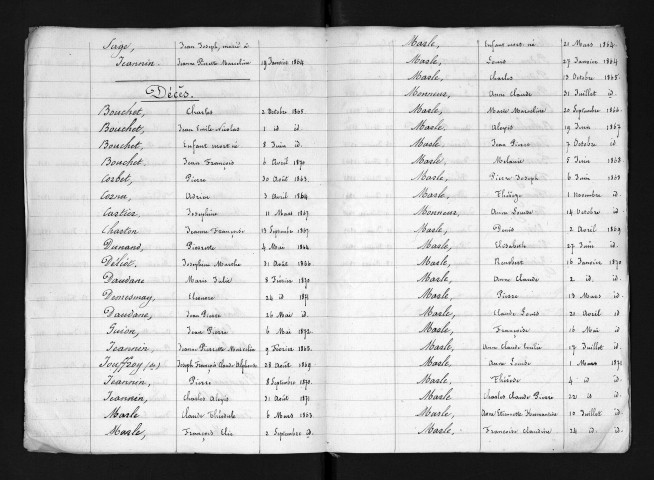 Sage, Jean Joseph, marié à
Jeannin. Jeanne Pierrette Marceline 19 Janvier 1864
Décès.
Bouchet, Charles 2 Octobre 1865.
Bouchet, Jean Emile Nicolas 1 id id.
Bouchet, Enfant mort né 8 Juin id.
Bouchet, Jean François 6 Avril 1870
Corbet, Pierre 30 Août 1863.
Adrien 3 Avril 1864
Cartier Joséphine 11 Mars 1867.
Charton Jeanne Françoise 13 Septembre 1867
Dunand, Pierrette 4 Mai 1866.
Déliot. Joséphine Marthe 31 Août 1866
Daudane Marie Julie 8 Février 1870.
Demesmay, 24 id 1871
Daudane, Jean Pierre 26 Mai id.
Guion, Jean Pierre 6 Mai 1872.
Jeannin, Jeanne Pierrette Marcelin 9 Février 1865.
Jouffroy (de) Joseph François Claude Alphonse 28 Août 1869
Jeannin, Pierre 8 Septembre 1870.
Jeannin, Charles Aloyis 31 Août 1871.
Masle Claude Théodule 6 Mars 1863
Masle, François Elie 2 Septembre id.
Masle, Enfant mort né 21 Mars 1864.
Masle, Louis 27 Janvier 1864
Masle, Charles 13 Octobre 1865.
Monneur, Anne Claude 31 Juillet id
Masle, Marie Marceline 20 Septembre 1866.
Masle, Aloyis 19 Juin 1867
Masle, Jean Pierre 7 Octobre id.
Masle, Mélanie 5 Juin 1868
Masle, Pierre Joseph 6 Juin 1868
Masle, 1 Novembre id.
Monneur, Anne Louise 14 Octobre id.
Masle, Denis 2 Avril 1869
Masle, Elisabeth 27 Juin id.
Masle, 16 Janvier 1870
Masle, Anne Claude 2 id. id.
Masle, Pierre 18 Mars id.
Masle, Claude Louis 21 Avril id
Masle, Françoise 16 Mai id.
Masle, Anne Claude Emilie 17 Juillet id.
Masle, Anne Louise 1 Mars 1871
Masle, Thérèse 4 id id.
Masle, Charles Claude Pierre 22 id id.
Masle, Anne Etiennette 10 Juillet id.
Masle, Françoise Claudine 24 id. id.